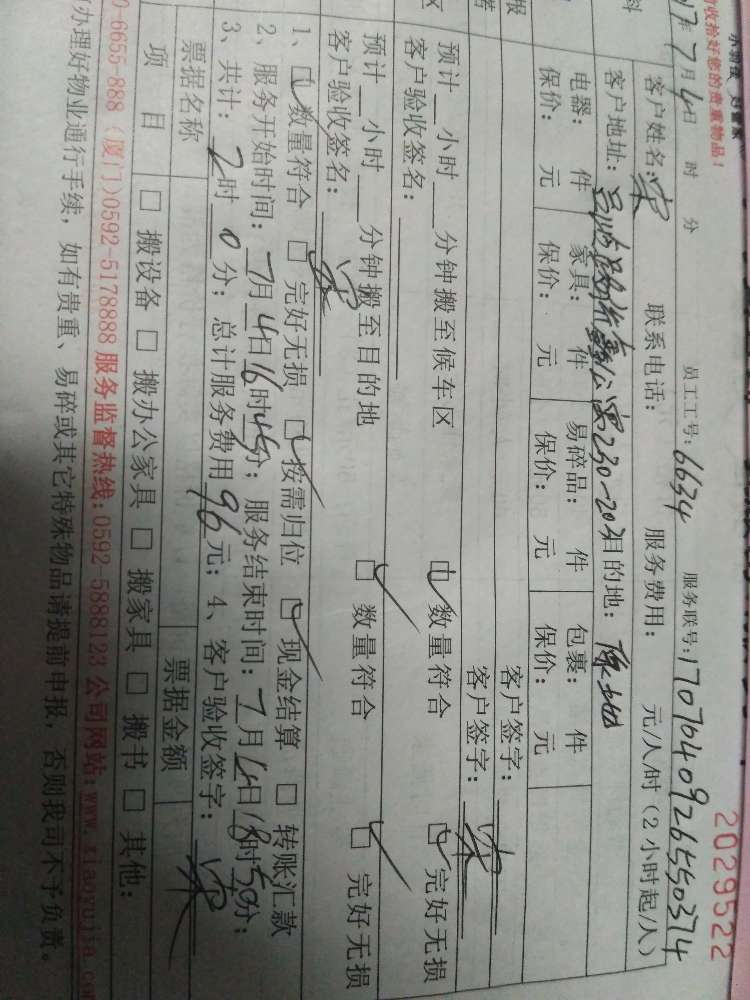 小羽佳 好管家
收拾好您的贵重物品！
2029522
17年7月4日 时 分 员工工号：6634 服务联号：17070409265550374
料
客户姓名：宋 联系电话： 服务费用： 元/人/时（2小时起/人）
客户地址： 230-203 目的地：原地
电器： 件 家具： 件 易碎品： 件 包裹： 件
保价： 元 保价： 元 保价： 元 保价： 元
报 客户签字：
客户签字：宋
区 预计 小时 分钟搬至候车区 数量符合 完好无损
客户验收签名：
预计 小时 分钟搬至目的地 数量符合 完好无损
客户验收签名：宋
1、 数量符合 完好无损 按需归位 现金结算 转账汇款
2、服务开始时间：7月4日16时45分；服务结束时间：7月4日18时50分；
3、共计：2时0分；总计服务费用96元；4、客户验收签字：宋
票据名称 票据金额
项目 搬设备 搬办公家具 搬家具 搬书 其他：
0-6655-888 （厦门）0592-5178888 服务监督热线：0592-5888123 公司网站：www.xiaoyujia.com
办理好物业通行手续，如有贵重、易碎或其它特殊物品请提前申报，否则我司不予负责。